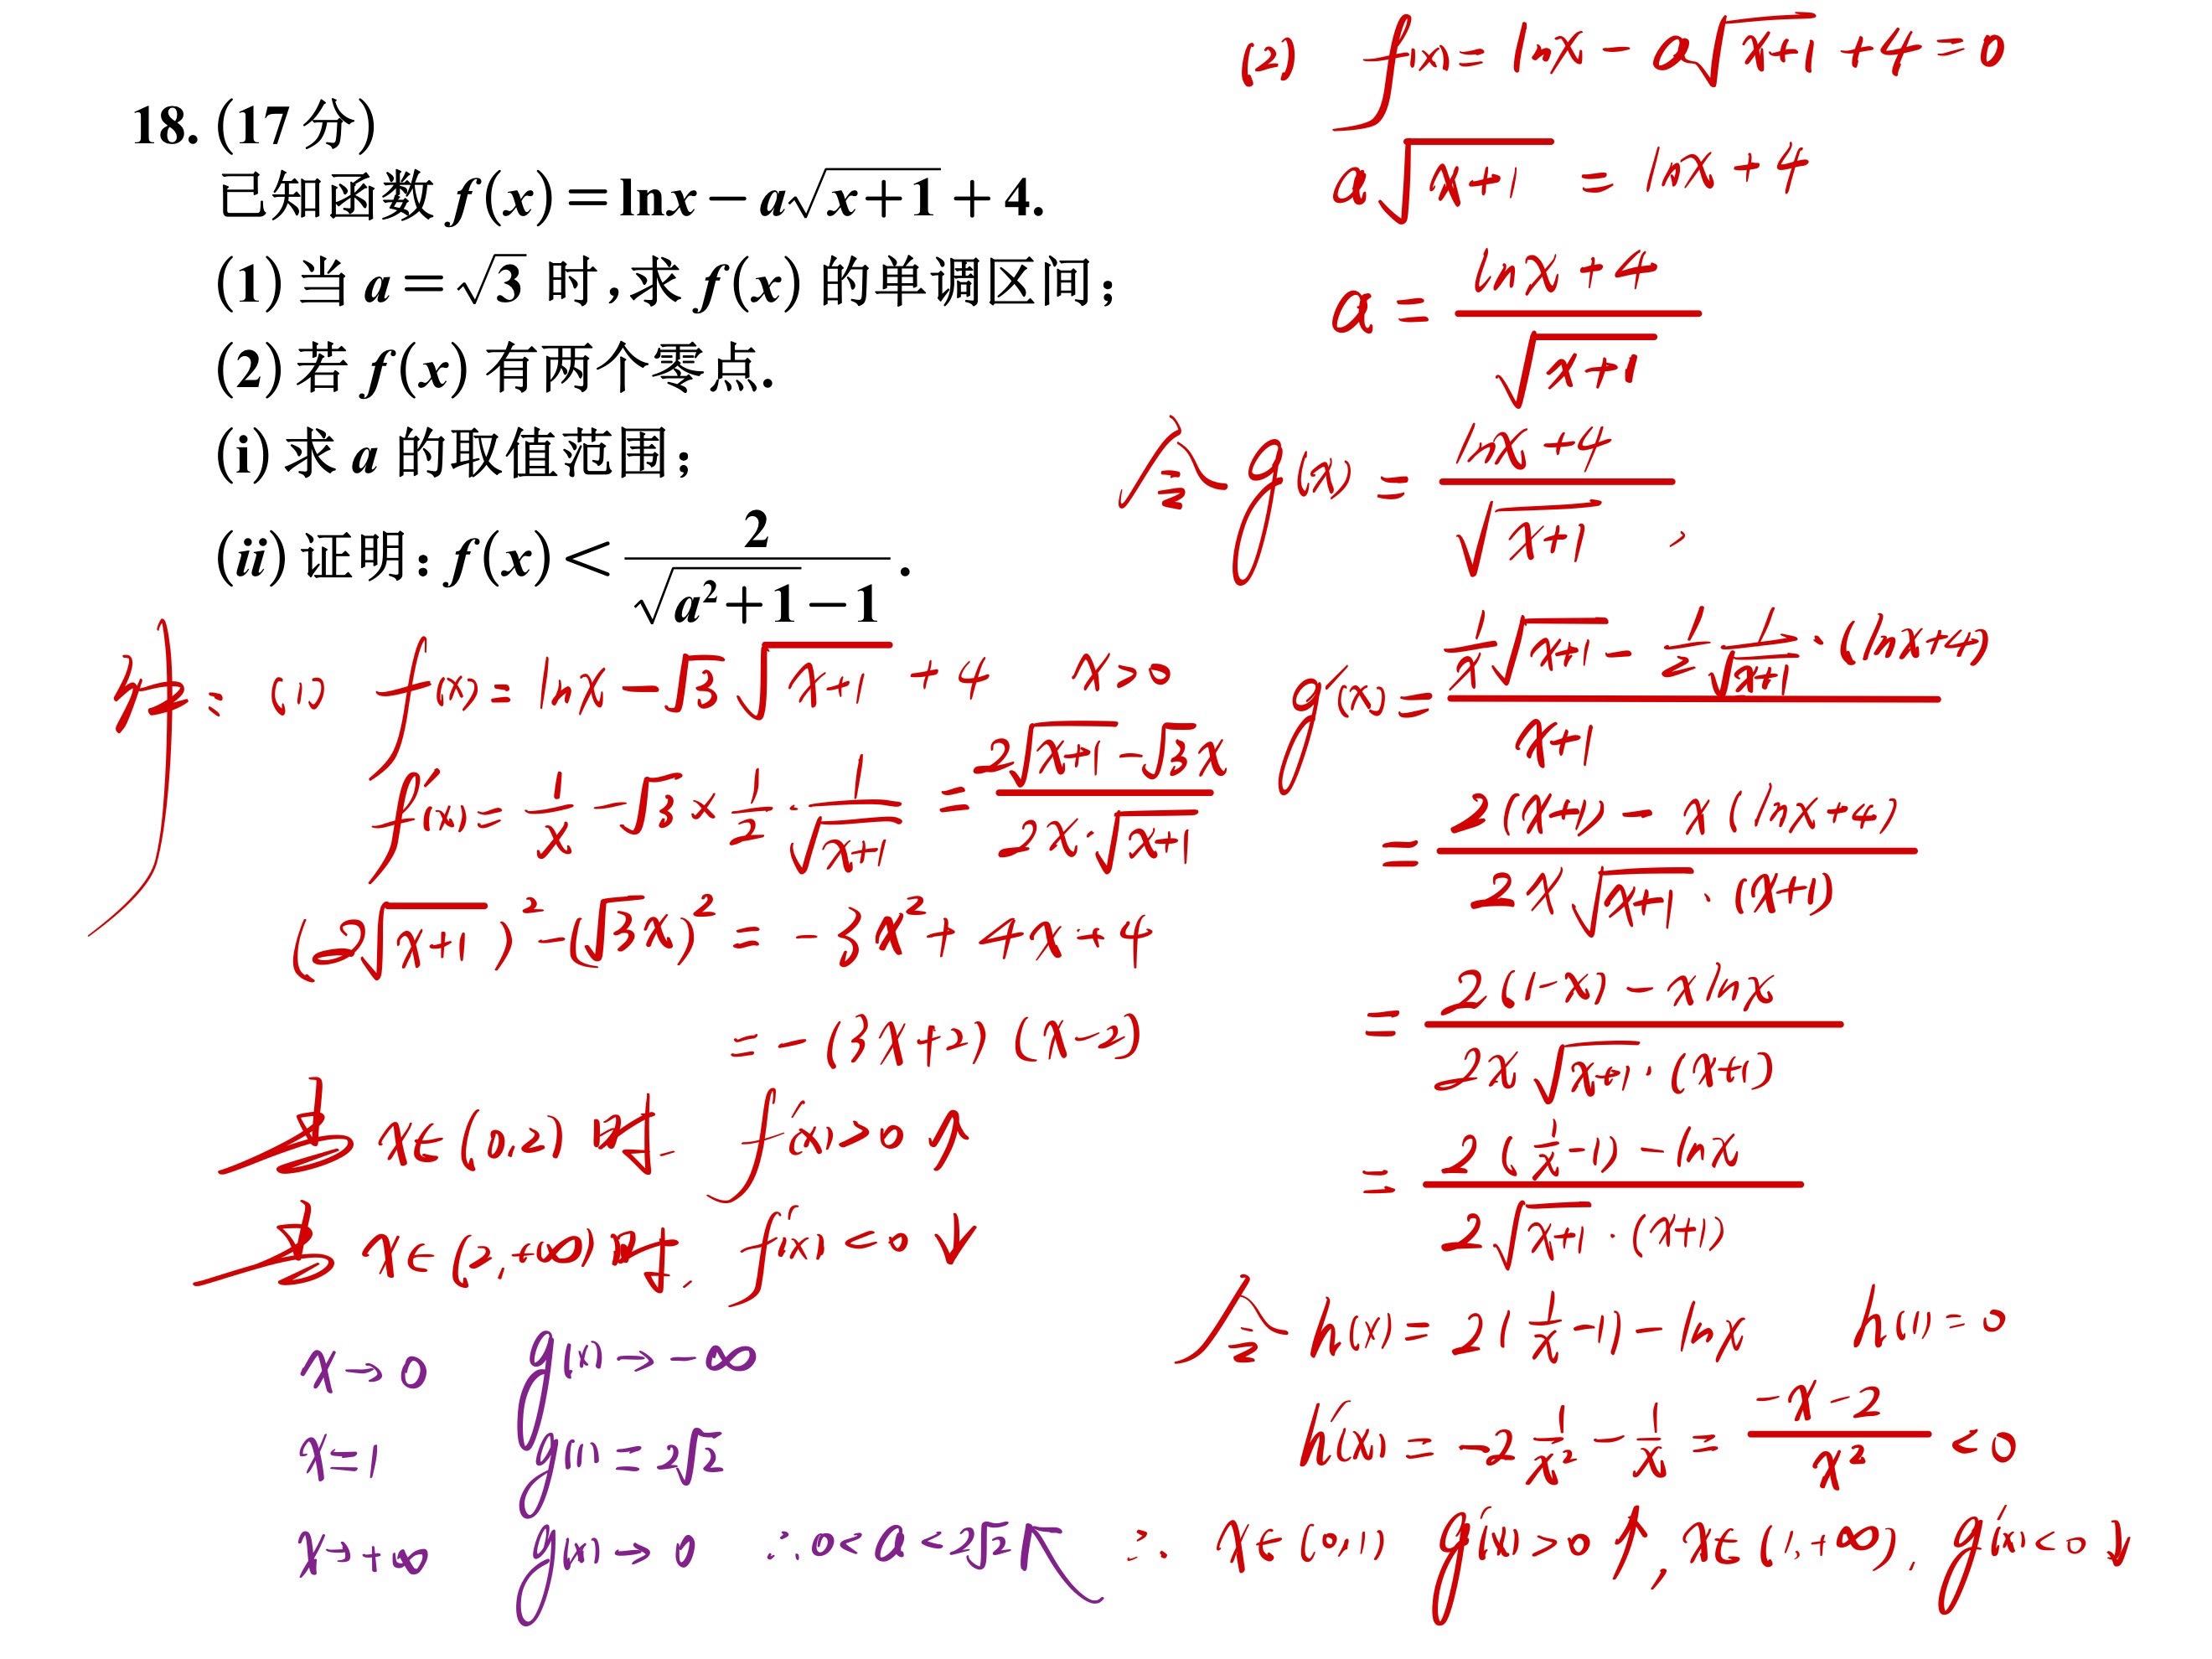 18. (17分)
已知函数 f(x)=lnx-a√(x+1)+4.
(1) 当 a=√3 时,求 f(x) 的单调区间;
(2) 若 f(x) 有两个零点.
(i) 求 a 的取值范围;
(ii) 证明: f(x)<2/(√(a²+1)-1).
解: (1) f(x)=lnx-√3√(x+1)+4 x>0
f'(x)=1/x-√3×1/2·1/√(x+1)=(2√(x+1)-√3x)/(2x·√(x+1))
(2√(x+1))²-(√3x)²=-3x²+4x+4
=-(3x+2)(x-2)
当 x∈(0,2) 时. f'(x)>0 ↑
当 x∈(2,+∞) 时, f'(x)<0 ↓
(2) f(x)=lnx-a√(x+1)+4=0
a√(x+1)=lnx+4
a=(lnx+4)/√(x+1)
令 g(x)=(lnx+4)/√(x+1),
g'(x)=(1/x√(x+1)-1/2 1/√(x+1)·(lnx+4))/(x+1)
=(2(x+1)-x(lnx+4))/(2x√(x+1)·(x+1))
=(2(1-x)-xlnx)/(2x√(x+1)·(x+1))
=(2(1/x-1)-lnx)/(2√(x+1)·(x+1))
令 h(x)=2(1/x-1)-lnx h(1)=0
h'(x)=-2 1/x²-1/x=(-x-2)/x²<0
∴ x∈(0,1) g'(x)>0 ↑, x∈(1,+∞), g'(x)<0 ↓
x→0 g(x)→-∞
x=1 g(1)=2√2
x→+∞ g(x)→0 ∴0<a<2√2